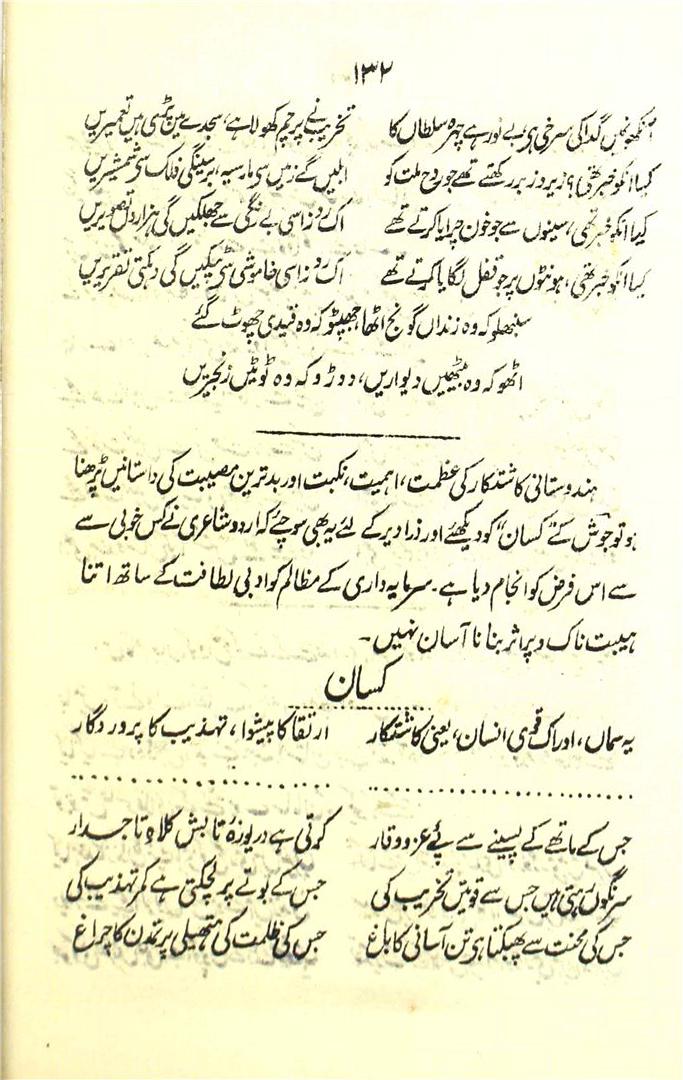 ۱۳۲
آنکھوں میں گدا کی سرخی ہے بے نور ہے چہرہ سلطاں کا تخریب نے پرچم کھولا ہے، سجدے میں پڑی ہیں تعمیریں
کیا انکو خبر تھی؟ زیر و زبر رکھتے تھے جو روح ملت کو ابلیں گے زمیں سی مار سیہ، برسینگی فلک سی شمشیریں
کیا انکو خبر تھی، سینوں سے جو خون چرایا کرتے تھے اک روز اسی بے رنگی سے جھلکیں گی ہزاروں تصویریں
کیا انکو خبر تھی، ہونٹوں پر جو قفل لگایا کرتے تھے اک روز اسی خاموشی سی ٹپکیں گی دہکتی تقریریں
سنبھلو کہ وہ زنداں گونج اٹھا جھپٹو کہ وہ قیدی چھوٹ گئے
اٹھو کہ وہ بیٹھیں دیواریں، دوڑو کہ وہ ٹوٹیں زنجیریں
ہندوستانی کاشتکار کی عظمت، اہمیت، نکبت اور بدترین مصیبت کی داستانیں پڑھنا
ہو تو جوش کے "کسان" کو دیکھئے اور ذرا دیر کے لئے یہ بھی سوچئے کہ اردو شاعری نے کس خوبی سے
سے اس فرض کو انجام دیا ہے۔ سرمایہ داری کے مظالم کو ادبی لطافت کے ساتھ اتنا
ہیبت ناک و پر اثر بنانا آسان نہیں۔
کسان
یہ سماں، اور اک قوی انسان، یعنی کاشتکار ارتقا کا پیشوا، تہذیب کا پروردگار
جس کے ماتھے کے پسینے سے پئے عز و وقار کرتی ہے دریوزۂ تابش کلاہِ تاجدار
سرنگوں رہتی ہیں جس سے قوتیں تخریب کی جس کے بوتے پر لچکتی ہے کمر تہذیب کی
جس کی محنت سے پھبکتا ہی تن آسانی کا باغ جس کی ظلمت کی ہتھیلی پر تمدن کا چراغ